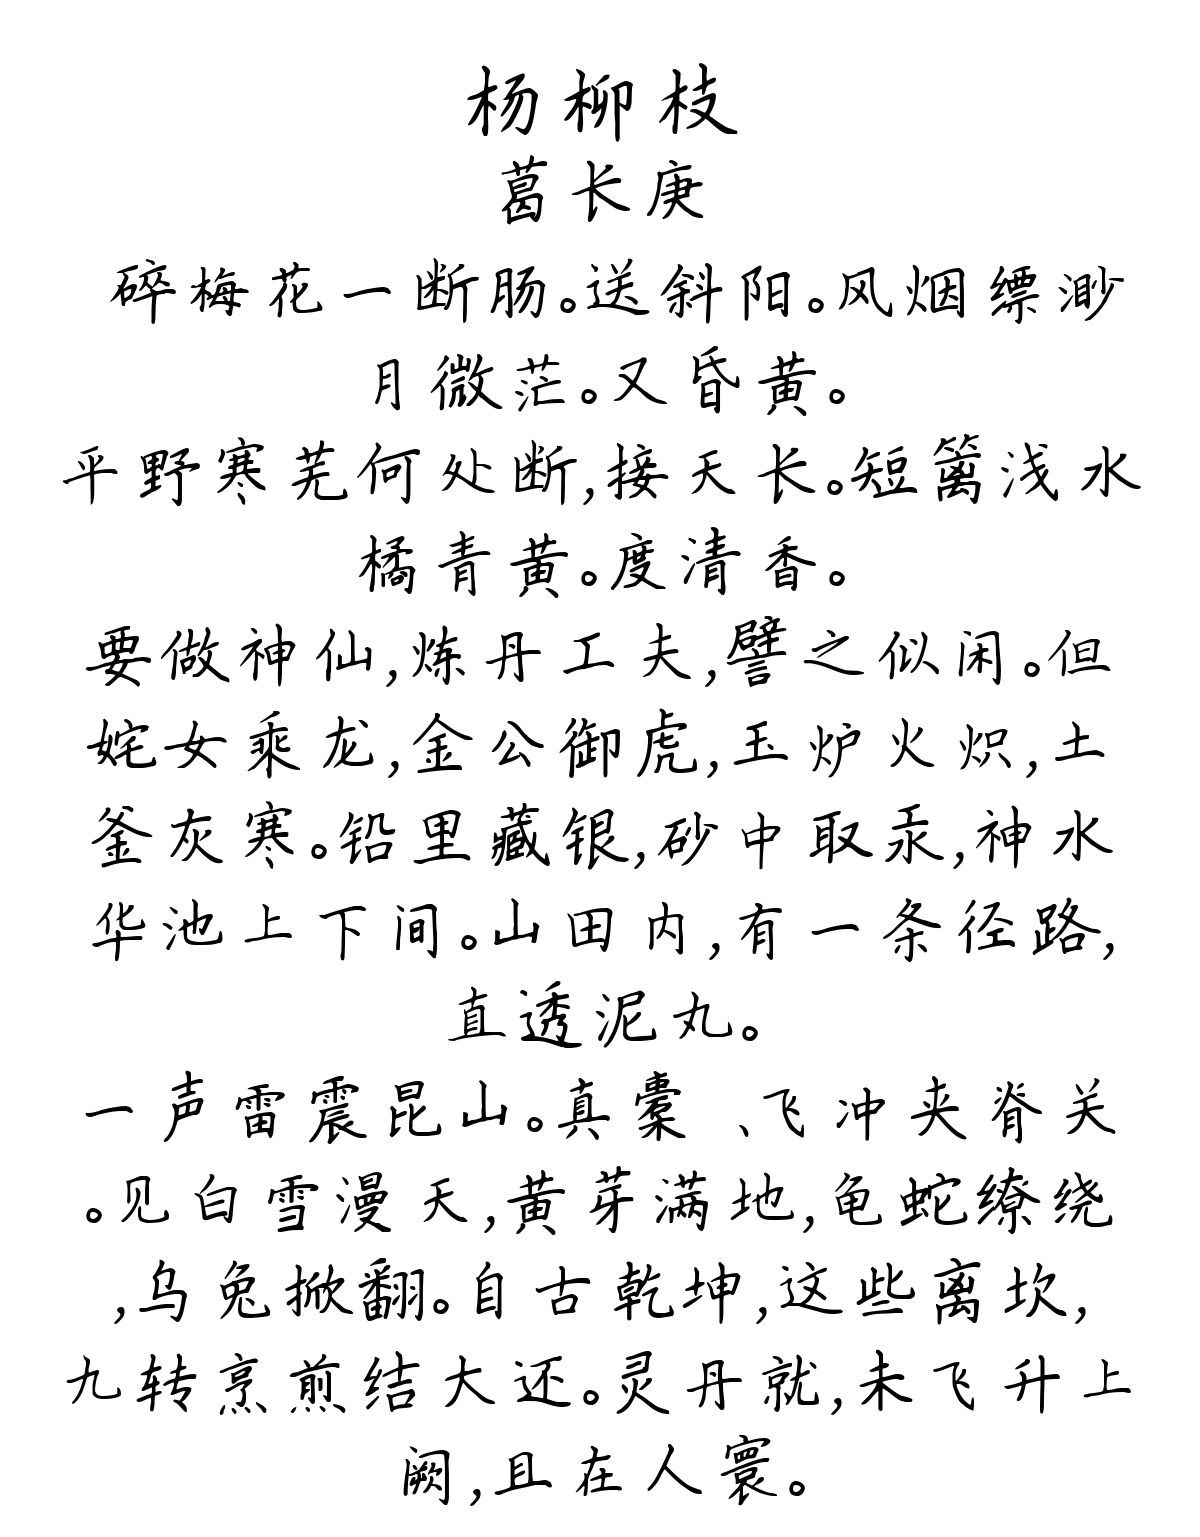 杨柳枝
葛长庚
碎梅花一断肠。送斜阳。风烟缥渺
月微茫。又昏黄。
平野寒芜何处断,接天长。短篱浅水
橘青黄。度清香。
要做神仙,炼丹工夫,譬之似闲。但
姹女乘龙,金公御虎,玉炉火炽,土
釜灰寒。铅里藏银,砂中取汞,神水
华池上下间。山田内,有一条径路,
直透泥丸。
一声雷震昆山。真橐 、飞冲夹脊关
。见白雪漫天,黄芽满地,龟蛇缭绕
,乌兔掀翻。自古乾坤,这些离坎,
九转烹煎结大还。灵丹就,未飞升上
阙,且在人寰。